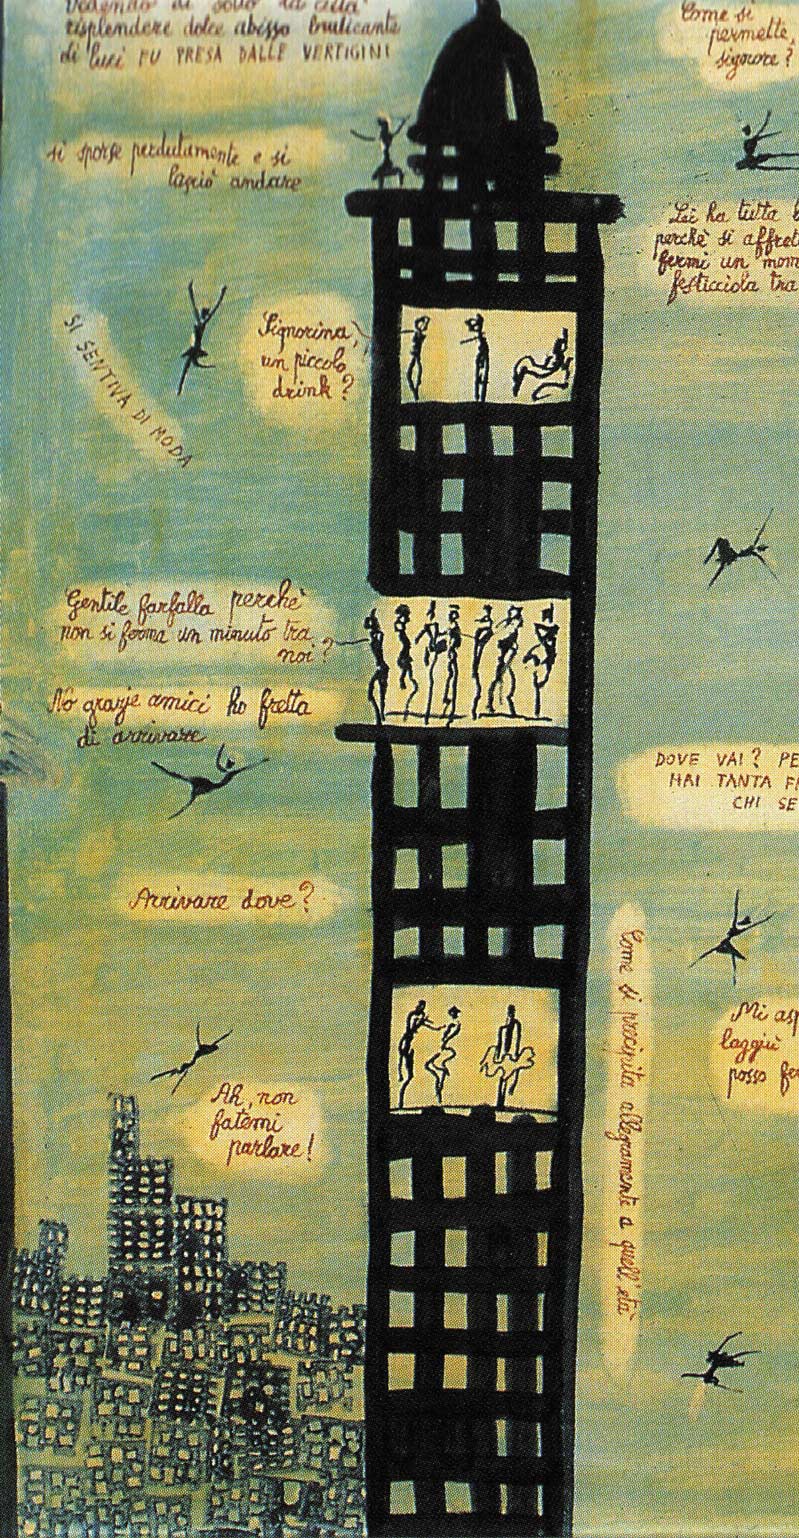 Vedendo di sotto la città
risplendere dolce abisso brulicante
di luci FU PRESA DALLE VERTIGINI
si sporse perdutamente e si
lasciò andare
SI SENTIVA DI MODA
Signorina,
un piccolo
drink?
Gentile farfalla perchè
non si ferma un minuto tra
noi?
No grazie amici ho fretta
di arrivare
Arrivare dove?
Ah, non
fatemi
parlare!
Come si
permette,
signore?
Lei ha tutta
perchè si affret
fermi un mom
festicciola tra
DOVE VAI? PE
HAI TANTA F
CHI SE
Come si precipita allegramente a quell'età
Mi asp
laggiù
posso fer